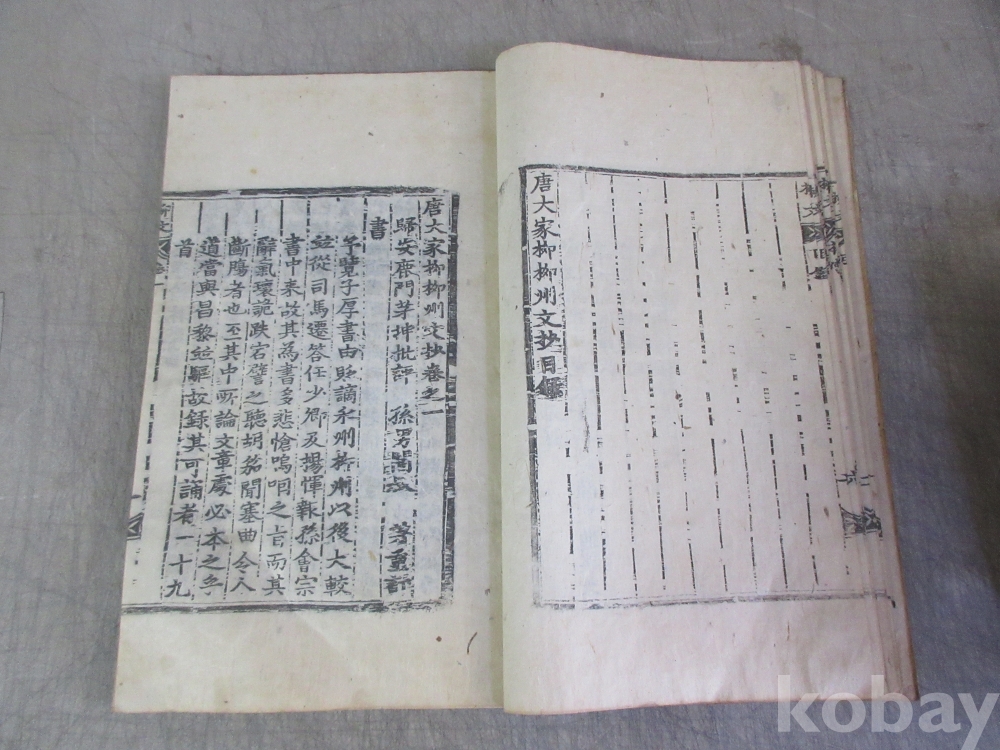 唐大家柳柳州文抄目錄
唐大家柳柳州文抄卷之一
歸安鹿門茅坤批評 孫男闇叔 等重訂
書
予覽子厚書由貶謫永州柳州以後大較
並從司馬遷答任少卿及楊惲報孫會宗
書中來故其為書多悲愴嗚咽之旨而其
辭氣瓌詭跌宕譬之聽胡笳聞塞曲令人
斷腸者也至其中所論文章處必本之乎
道當與昌黎並驅故錄其可誦者一十九
首
kobay